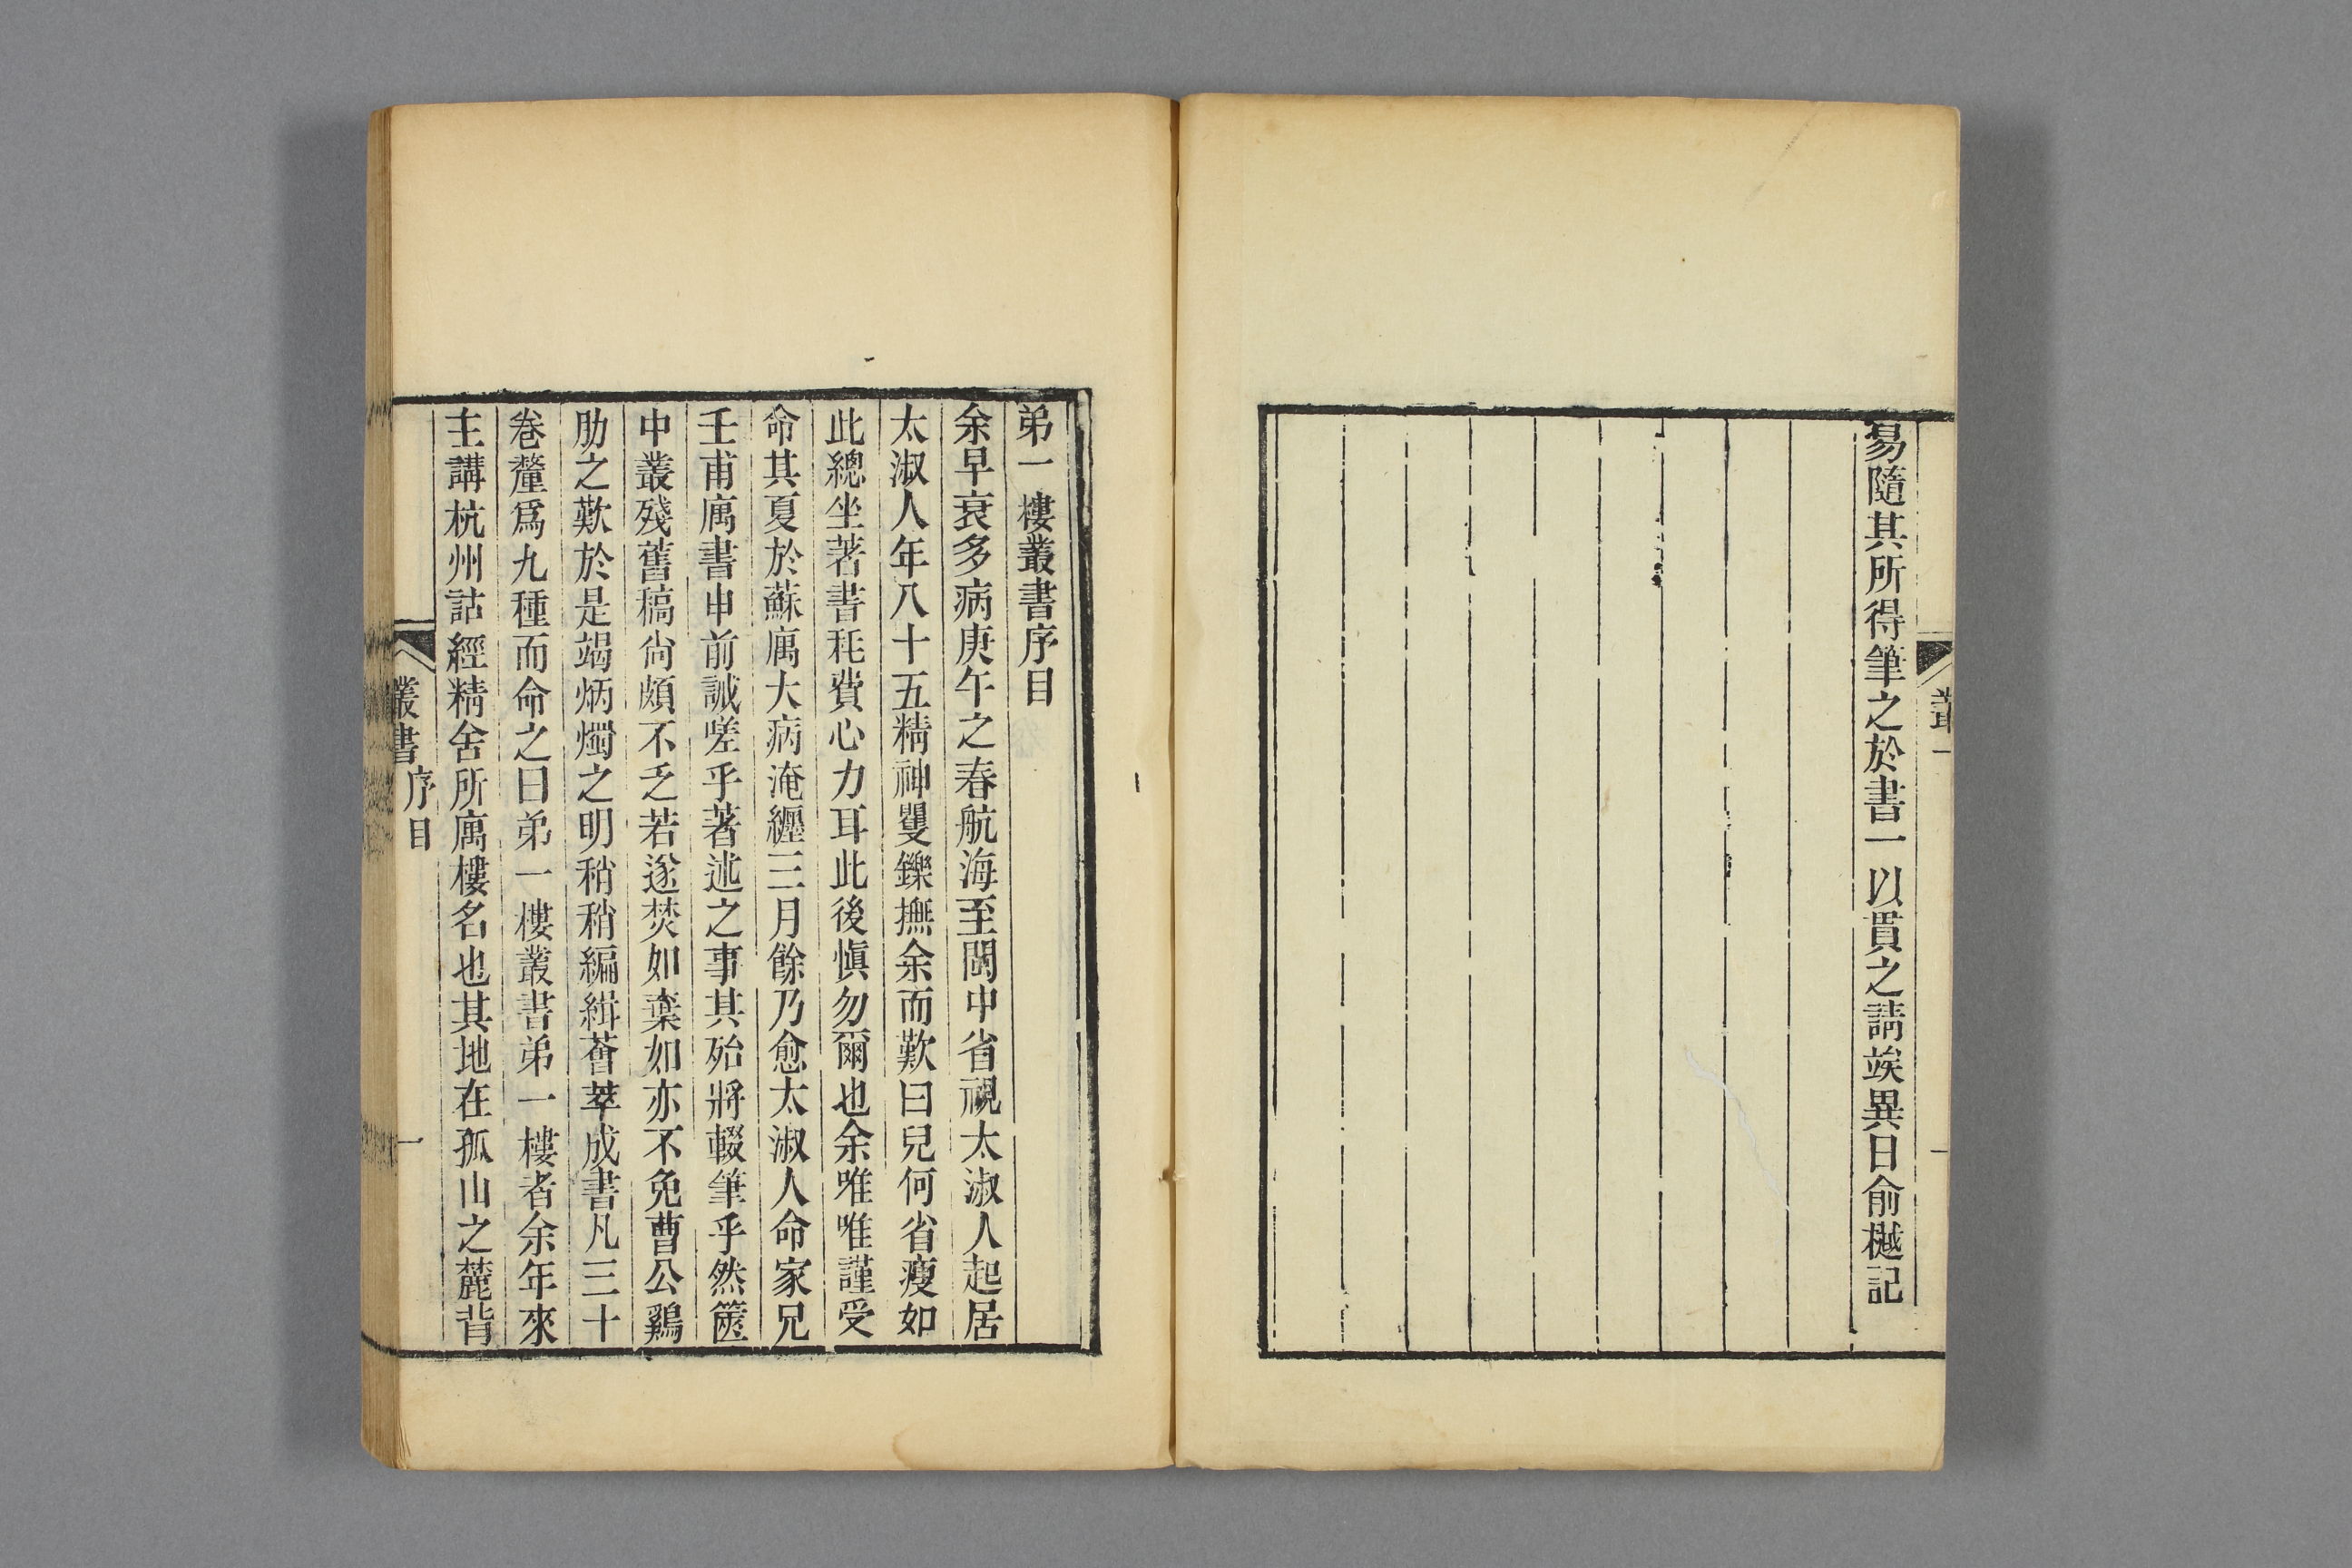 易隨其所得筆之於書一以貫之請竢異日俞樾記
叢一
一
弟一樓叢書序目
余早衰多病庚午之春航海至閩中省視太淑人起居
太淑人年八十五精神矍鑠撫余而歎曰兒何省瘦如
此總坐著書秏費心力耳此後愼勿爾也余唯唯謹受
命其夏於蘇寓大病淹纏三月餘乃愈太淑人命家兄
壬甫寓書申前誡嗟乎著述之事其殆將輟筆乎然篋
中叢殘舊稿尙頗不乏若遂焚如棄如亦不免曹公鷄
肋之歎於是竭炳燭之明稍稍編緝薈萃成書凡三十
卷釐爲九種而命之曰弟一樓叢書弟一樓者余年來
主講杭州詁經精舍所寓樓名也其地在孤山之麓背
叢書序目
一